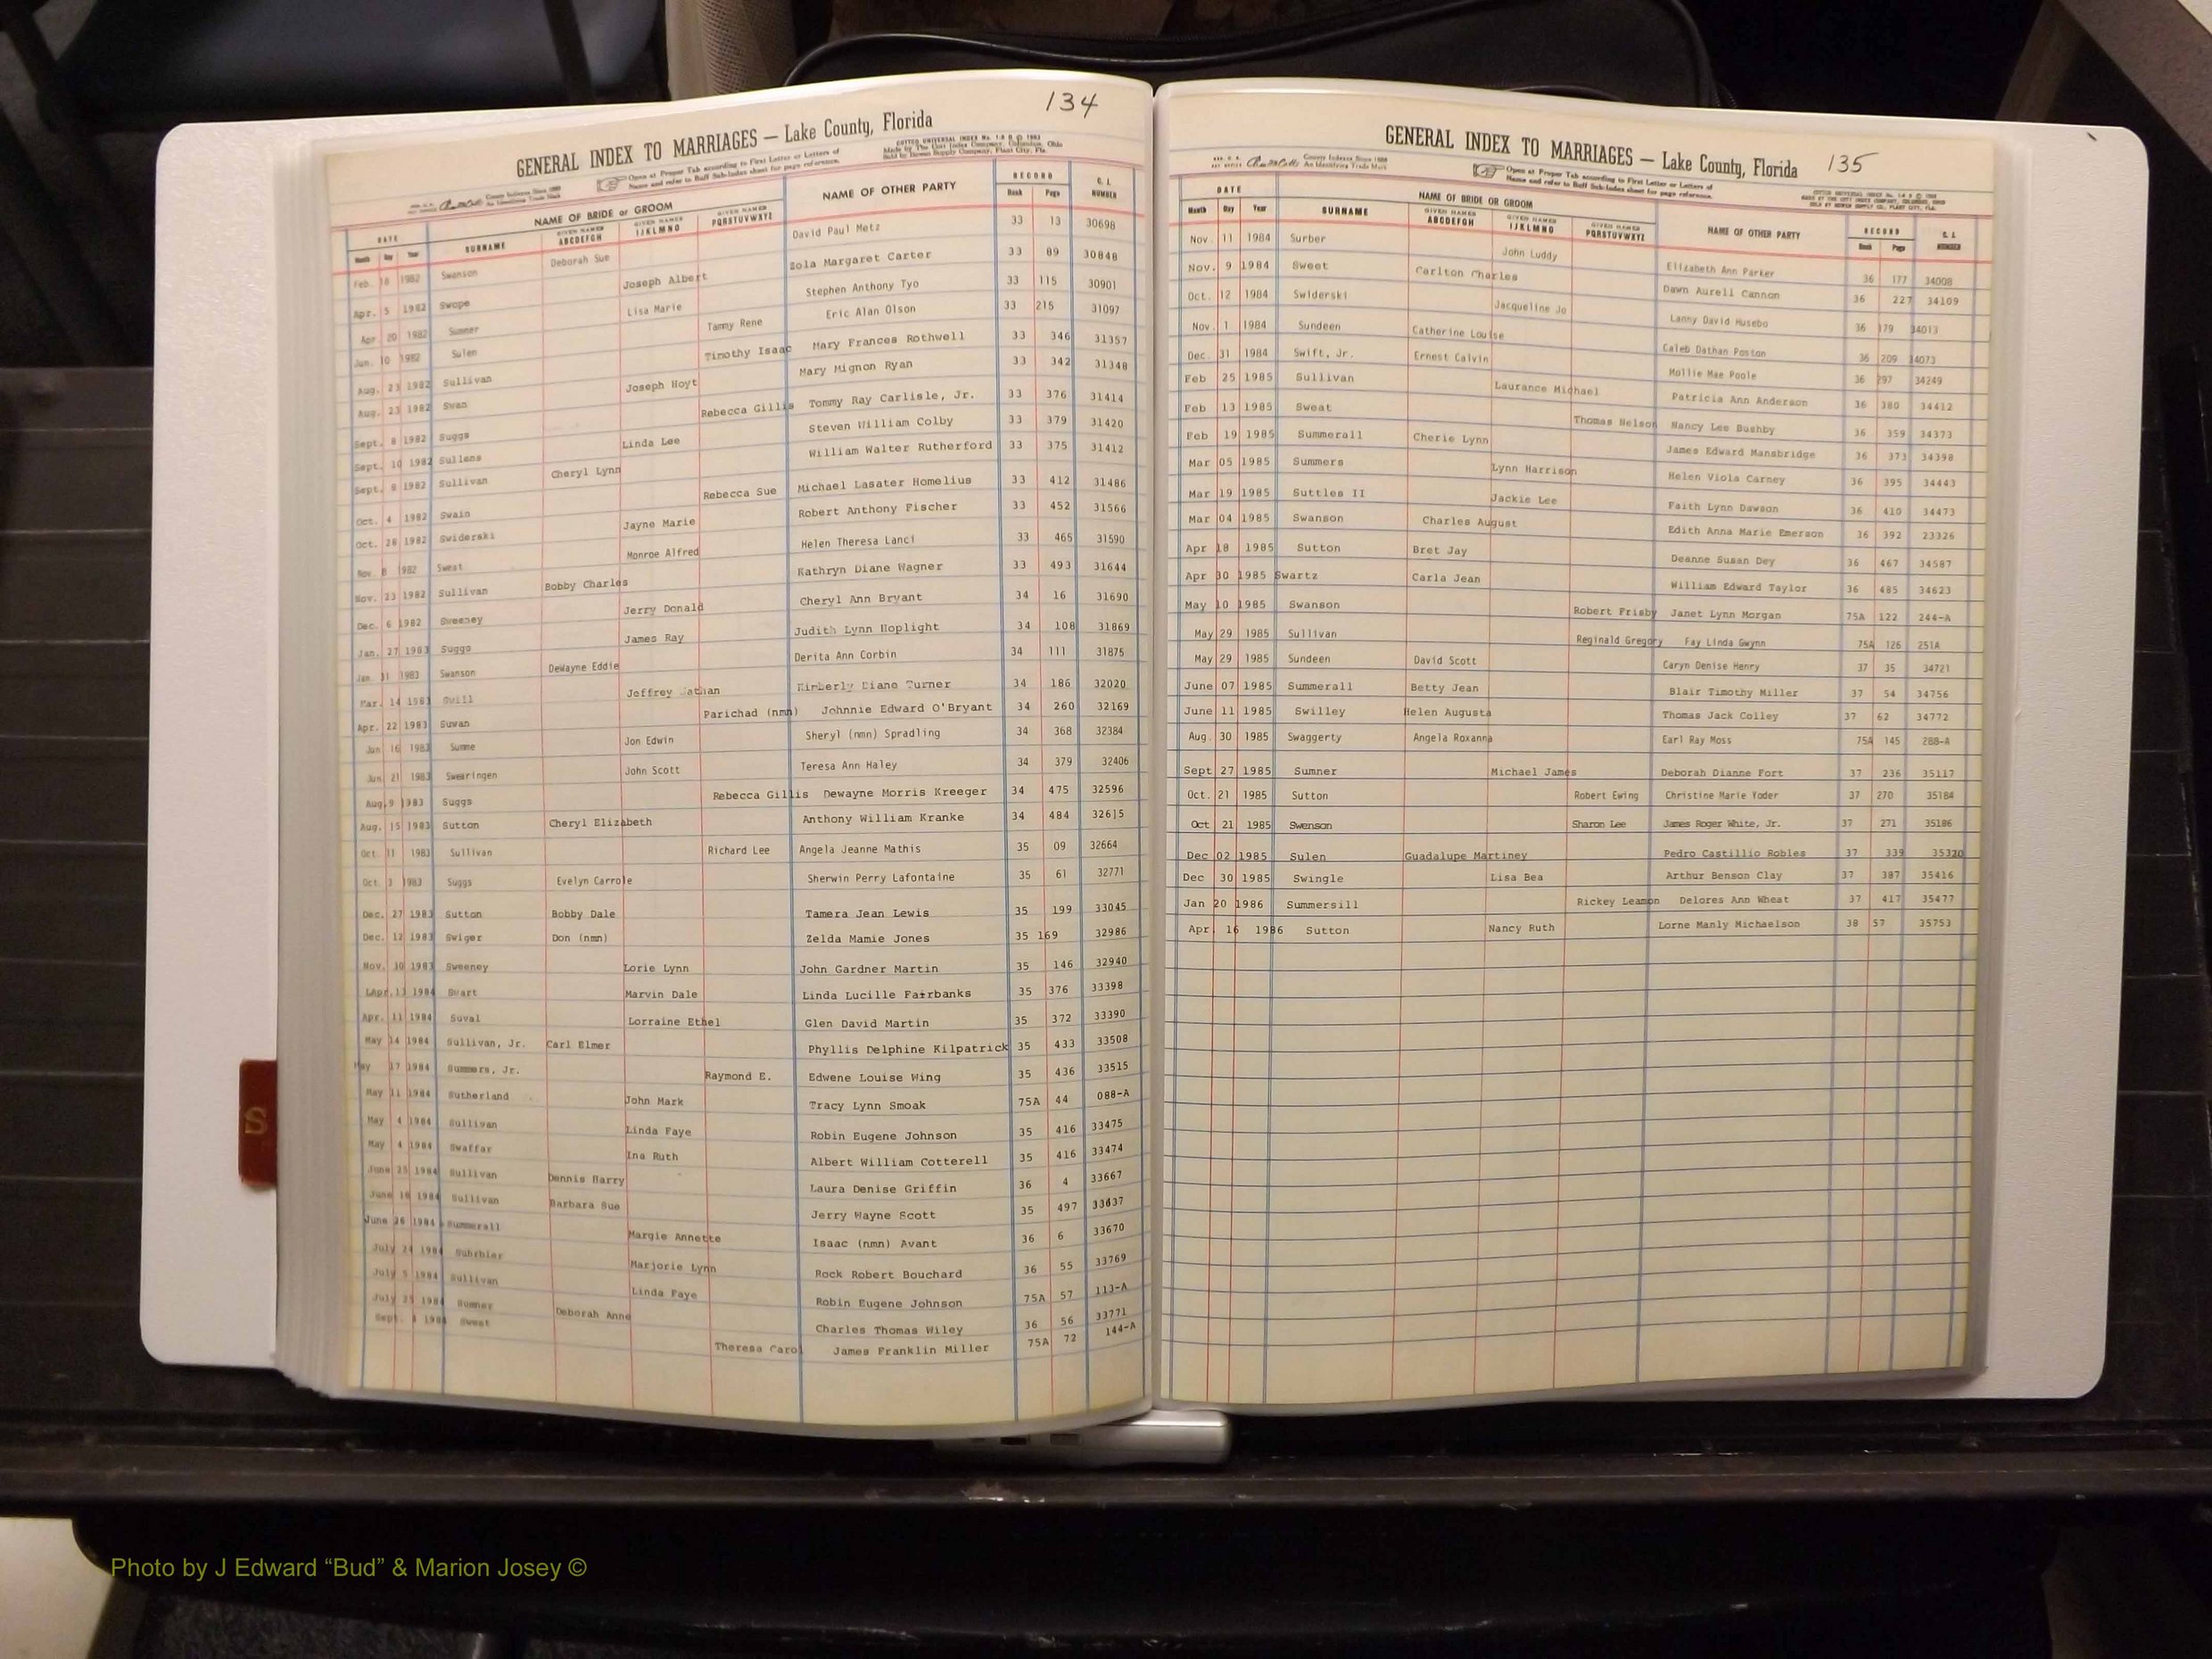 134
GENERAL INDEX TO MARRIAGES — Lake County, Florida
County Indexes Since 1888
An Identifying Trade Mark
Open at Proper Tab according to First Letter or Letters of
Name and refer to Buff Sub-Index sheet for page reference.
DATE NAME OF BRIDE or GROOM NAME OF OTHER PARTY RECORD C. I. NUMBER
Month Day Year SURNAME GIVEN NAMES ABCDEFGH GIVEN NAMES IJKLMNO GIVEN NAMES PQRSTUVWXYZ Book Page
Feb. 18 1982 Swanson Deborah Sue David Paul Metz 33 13 30698
Apr. 5 1982 Swope Joseph Albert Zola Margaret Carter 33 89 30848
Apr. 20 1982 Sumner Lisa Marie Stephen Anthony Tyo 33 115 30901
Jun. 10 1982 Sulen Tammy Rene Eric Alan Olson 33 215 31097
Aug. 23 1982 Sullivan Timothy Isaac Mary Frances Rothwell 33 346 31357
Aug. 23 1982 Swan Joseph Hoyt Mary Mignon Ryan 33 342 31348
Sept. 8 1982 Suggs Rebecca Gillis Tommy Ray Carlisle, Jr. 33 376 31414
Sept. 10 1982 Sullens Linda Lee Steven William Colby 33 379 31420
Sept. 8 1982 Sullivan Cheryl Lynn William Walter Rutherford 33 375 31412
Oct. 4 1982 Swain Rebecca Sue Michael Lasater Homelius 33 412 31486
Oct. 28 1982 Swiderski Jayne Marie Robert Anthony Fischer 33 452 31566
Nov. 8 1982 Sweat Monroe Alfred Helen Theresa Lanci 33 465 31590
Nov. 23 1982 Sullivan Bobby Charles Kathryn Diane Wagner 33 493 31644
Dec. 6 1982 Sweeney Jerry Donald Cheryl Ann Bryant 34 16 31690
Jan. 27 1983 Suggs James Ray Judith Lynn Hoplight 34 108 31869
Jan. 31 1983 Swanson DeWayne Eddie Derita Ann Corbin 34 111 31875
Mar. 14 1983 Jeffrey Nathan Kimberly Diane Turner 34 186 32020
Apr. 22 1983 Suwan Parichad (nmn) Johnnie Edward O'Bryant 34 260 32169
Jun 16 1983 Summe Jon Edwin Sheryl (nmn) Spradling 34 368 32384
Jun 21 1983 Swearingen John Scott Teresa Ann Haley 34 379 32406
Aug. 9 1983 Suggs Rebecca Gillis Dewayne Morris Kreeger 34 475 32596
Aug. 15 1983 Sutton Cheryl Elizabeth Anthony William Kranke 34 484 32615
Oct. 11 1983 Sullivan Richard Lee Angela Jeanne Mathis 35 09 32664
Oct. 3 1983 Suggs Evelyn Carrole Sherwin Perry Lafontaine 35 61 32771
Dec. 27 1983 Sutton Bobby Dale Tamera Jean Lewis 35 199 33045
Dec. 12 1983 Swiger Don (nmn) Zelda Mamie Jones 35 169 32986
Nov. 30 1983 Sweeney Lorie Lynn John Gardner Martin 35 146 32940
Apr. 13 1984 Swart Marvin Dale Linda Lucille Fairbanks 35 376 33398
Apr. 11 1984 Suval Lorraine Ethel Glen David Martin 35 372 33390
May 14 1984 Sullivan, Jr. Carl Elmer Phyllis Delphine Kilpatrick 35 433 33508
May 17 1984 Summers, Jr. Raymond E. Edwene Louise Wing 35 436 33515
May 11 1984 Sutherland John Mark Tracy Lynn Smoak 75A 44 088-A
May 4 1984 Sullivan Linda Faye Robin Eugene Johnson 35 416 33475
May 4 1984 Swaffar Ina Ruth Albert William Cotterell 35 416 33474
June 25 1984 Sullivan Dennis Harry Laura Denise Griffin 36 4 33667
June 18 1984 Sullivan Barbara Sue Jerry Wayne Scott 35 497 33637
June 26 1984 Summerall Margie Annette Isaac (nmn) Avant 36 6 33670
July 24 1984 Suhrbier Marjorie Lynn Rock Robert Bouchard 36 55 33769
July 5 1984 Sullivan Linda Faye Robin Eugene Johnson 75A 57 113-A
July 25 1984 Sumner Deborah Anne Charles Thomas Wiley 36 56 33771
Sept. 4 1984 Sweat Theresa Carol James Franklin Miller 75A 72 144-A
S
GENERAL INDEX TO MARRIAGES — Lake County, Florida 135
County Indexes Since 1888
An Identifying Trade Mark
Open at Proper Tab according to First Letter or Letters of
Name and refer to Buff Sub-Index sheet for page reference.
DATE NAME OF BRIDE or GROOM NAME OF OTHER PARTY RECORD C. I. NUMBER
Month Day Year SURNAME GIVEN NAMES ABCDEFGH GIVEN NAMES IJKLMNO GIVEN NAMES PQRSTUVWXYZ Book Page
Nov. 11 1984 Surber John Luddy Elizabeth Ann Parker 36 177 34008
Nov. 9 1984 Sweet Carlton Charles Dawn Aurell Cannon 36 227 34109
Oct. 12 1984 Swiderski Jacqueline Jo Lanny David Husebo 36 179 34013
Nov. 1 1984 Sundeen Catherine Louise Caleb Dathan Poston 36 209 34073
Dec. 31 1984 Swift, Jr. Ernest Calvin Mollie Mae Poole 36 297 34249
Feb 25 1985 Sullivan Laurance Michael Patricia Ann Anderson 36 380 34412
Feb 13 1985 Sweat Thomas Nelson Nancy Lee Bushby 36 359 34373
Feb 19 1985 Summerall Cherie Lynn James Edward Mansbridge 36 373 34398
Mar 05 1985 Summers Lynn Harrison Helen Viola Carney 36 395 34443
Mar 19 1985 Suttles II Jackie Lee Faith Lynn Dawson 36 410 34473
Mar 04 1985 Swanson Charles August Edith Anna Marie Emerson 36 392 23326
Apr 18 1985 Sutton Bret Jay Deanne Susan Dey 36 467 34587
Apr 30 1985 Swartz Carla Jean William Edward Taylor 36 485 34623
May 10 1985 Swanson Robert Frisby Janet Lynn Morgan 75A 122 244-A
May 29 1985 Sullivan Reginald Gregory Fay Linda Gwynn 75A 126 251A
May 29 1985 Sundeen David Scott Caryn Denise Henry 37 35 34721
June 07 1985 Summerall Betty Jean Blair Timothy Miller 37 54 34756
June 11 1985 Swilley Helen Augusta Thomas Jack Colley 37 62 34772
Aug. 30 1985 Swaggerty Angela Roxanna Earl Ray Moss 75A 145 288-A
Sept 27 1985 Sumner Michael James Deborah Dianne Fort 37 236 35117
Oct. 21 1985 Sutton Robert Ewing Christine Marie Yoder 37 270 35184
Oct 21 1985 Swenson Sharon Lee James Roger White, Jr. 37 271 35186
Dec 02 1985 Sulen Guadalupe Martiney Pedro Castillio Robles 37 339 35320
Dec 30 1985 Swingle Lisa Bea Arthur Benson Clay 37 387 35416
Jan 20 1986 Summersill Rickey Leamon Delores Ann Wheat 37 417 35477
Apr 16 1986 Sutton Nancy Ruth Lorne Manly Michaelson 38 57 35753
Photo by J Edward “Bud” & Marion Josey ©